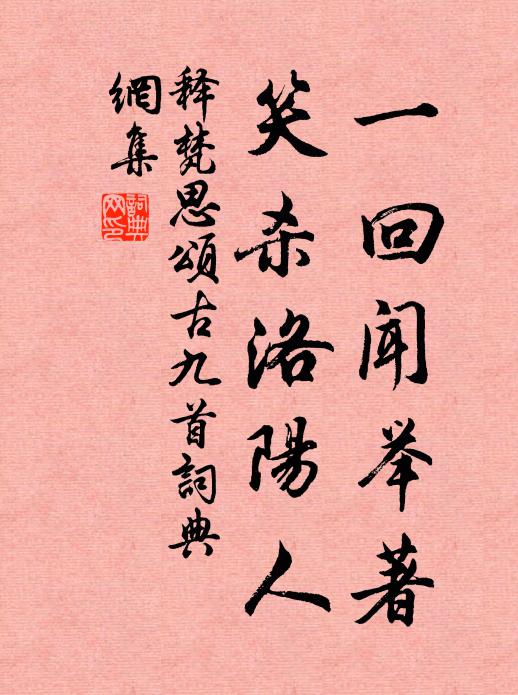 一回闻举著
笑杀洛陽人
释梵思頌古九首詞典
網集
詞典
网印